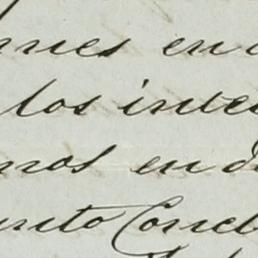 nes en
los inte
mos en d
unto Conc